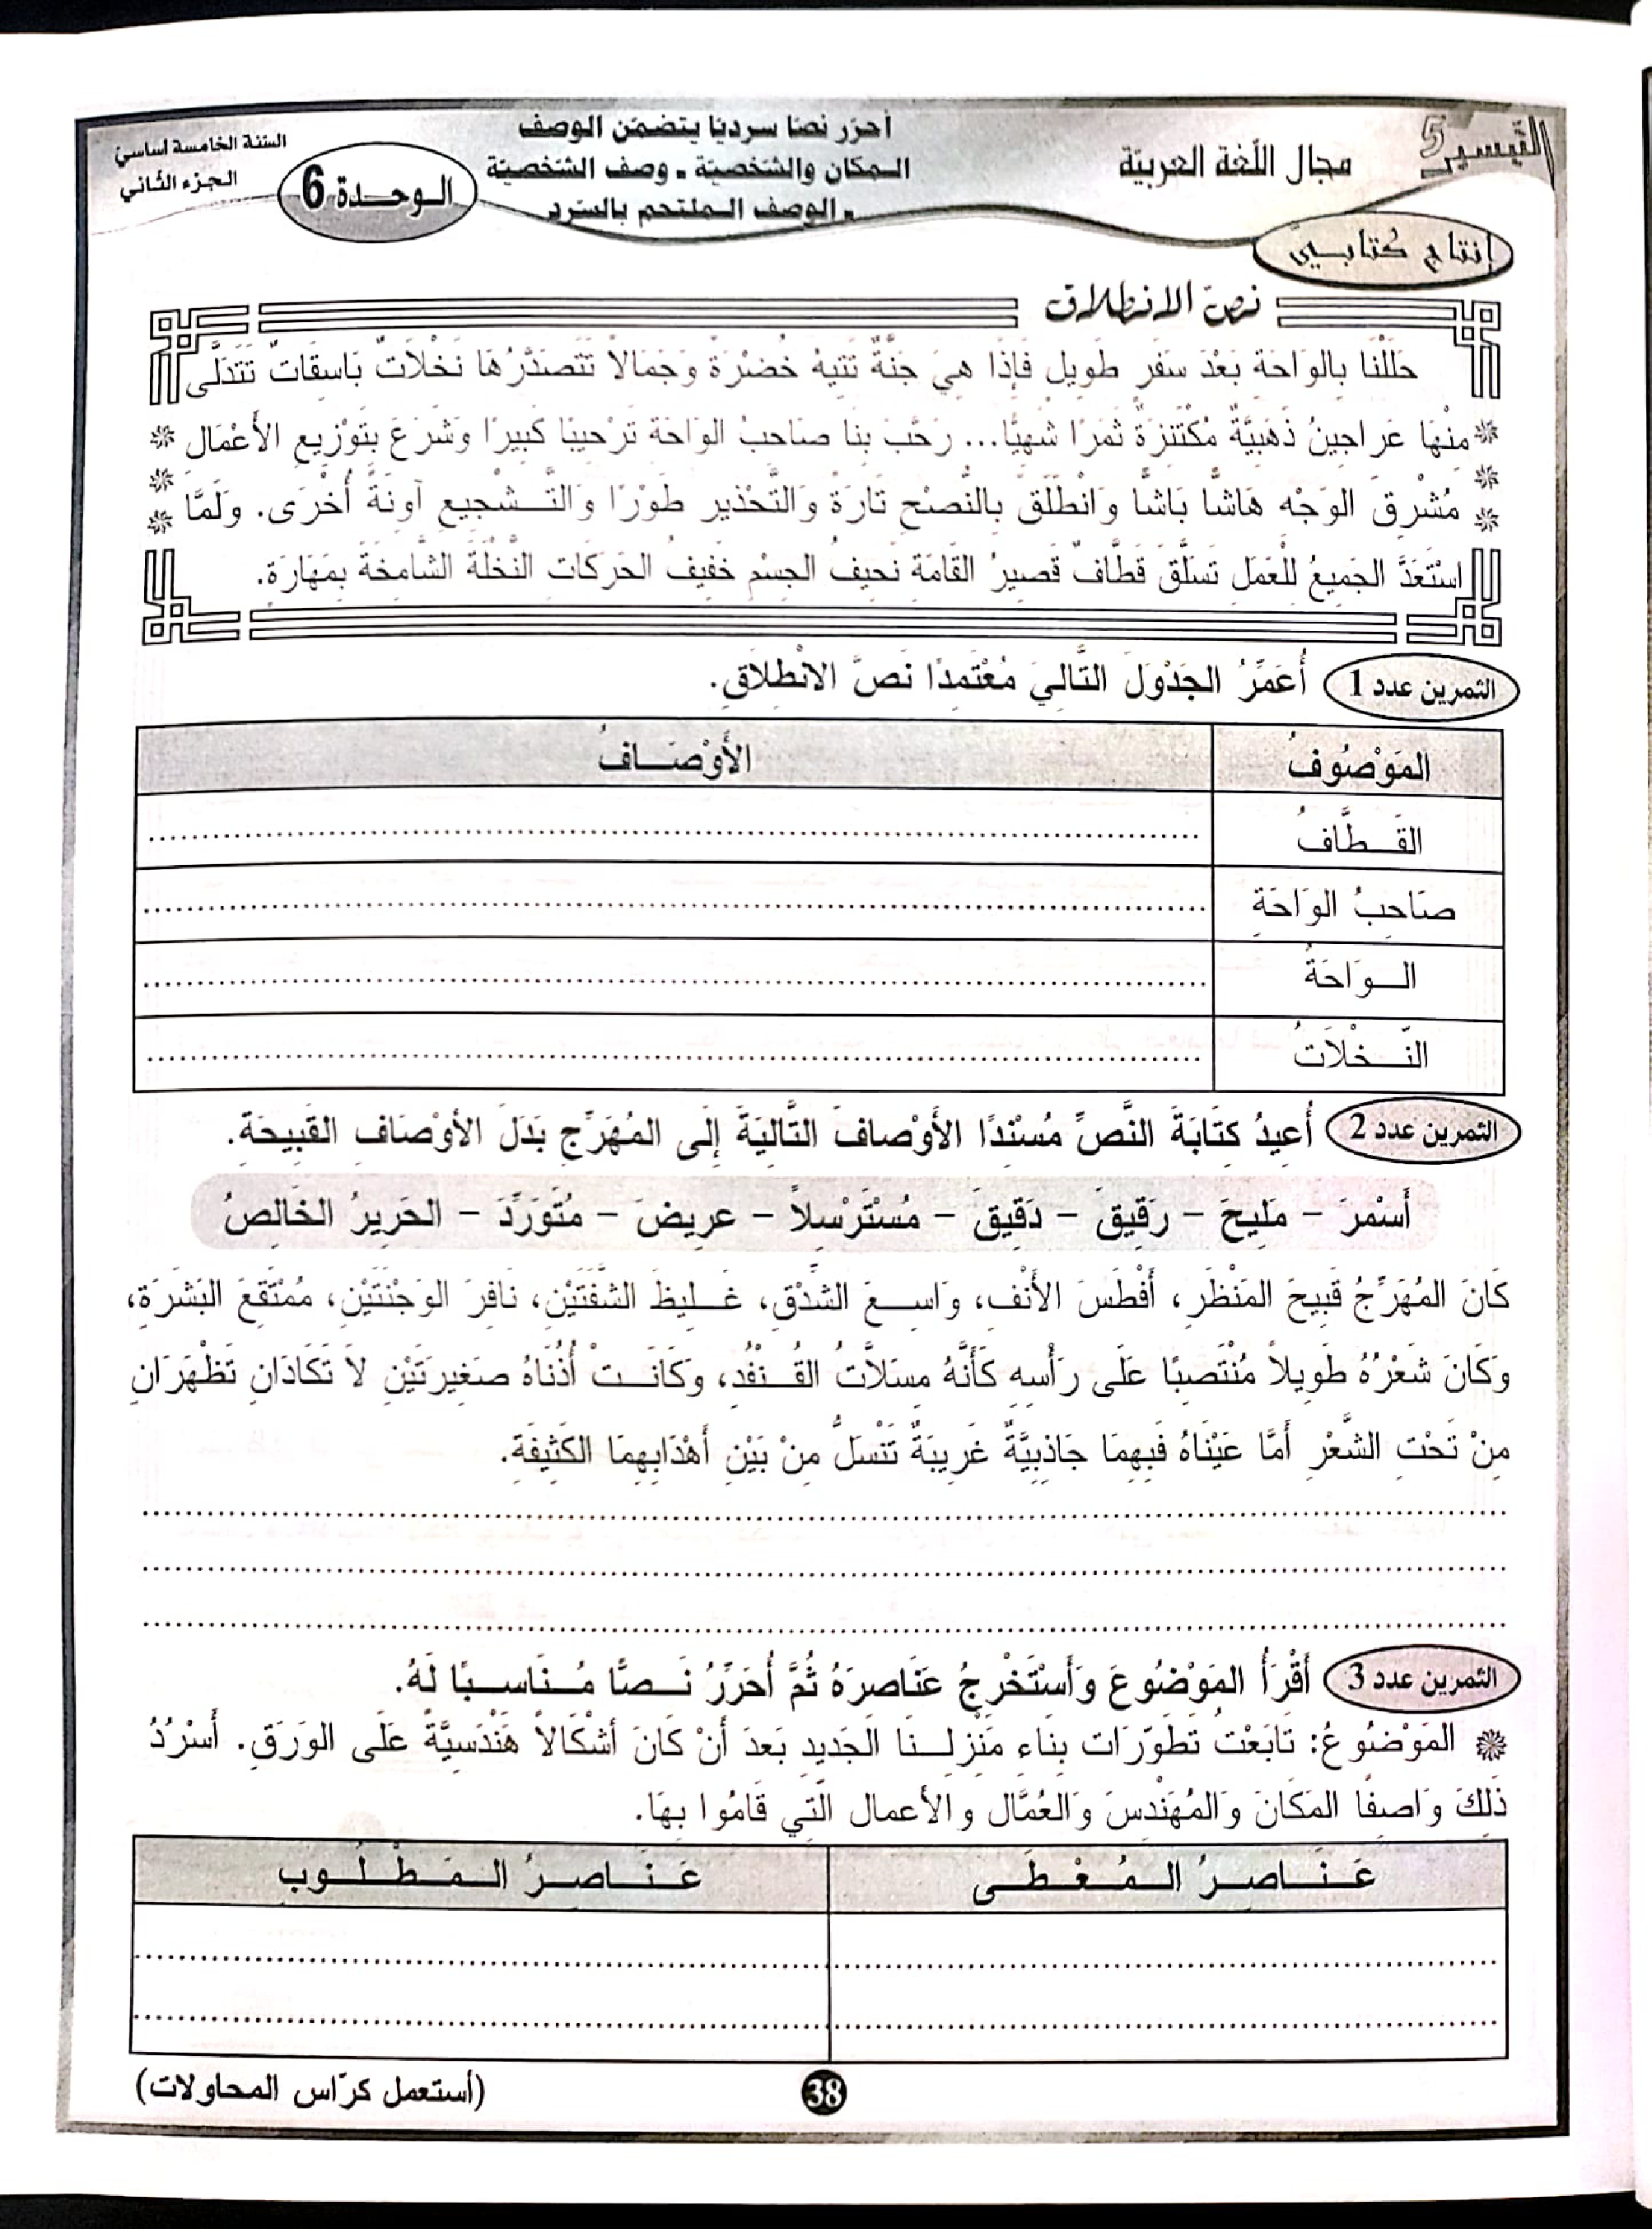 التيسير 5
مجال اللّغة العربيّة
أحرّر نصّا سرديّا يتضمّن الوصف
المكان والشّخصيّة - وصف الشّخصيّة
- الوصف الملتحم بالسّرد
الوحدة 6
السّنة الخامسة أساسي
الجزء الثّاني
إنتاج كتابيّ
نصّ الانطلاق
حَلَلْنَا بِالوَاحَةِ بَعْدَ سَفَرٍ طَوِيلٍ فَإِذَا هِيَ جَنَّةٌ تَتِيهُ خُضْرَةً وَجَمَالاً تَتَصَدَّرُهَا نَخْلَاتٌ بَاسِقَاتٌ تَتَدَلَّى
مِنْهَا عَرَاجِينُ ذَهَبِيَّةٌ مُكْتَنِزَةٌ تَمْرًا شَهِيًّا... رَحَّبَ بِنَا صَاحِبُ الوَاحَةِ تَرْحِيبًا كَبِيرًا وَشَرَعَ بِتَوْزِيعِ الأَعْمَالِ
مُشْرِقَ الوَجْهِ هَاشًّا بَاشًّا وَانْطَلَقَ بِالنُّصْحِ تَارَةً وَالتَّحْذِيرِ طَوْرًا وَالتَّشْجِيعِ آوِنَةً أُخْرَى. وَلَمَّا
اسْتَعَدَّ الجَمِيعُ لِلْعَمَلِ تَسَلَّقَ قَطَّافٌ قَصِيرُ القَامَةِ نَحِيفُ الجِسْمِ خَفِيفُ الحَرَكَاتِ النَّخْلَةَ الشَّامِخَةَ بِمَهَارَةٍ.
التمرين عدد 1 أُعَمِّرُ الجَدْوَلَ التَّالِيَ مُعْتَمِدًا نَصَّ الانْطِلَاقِ.
المَوْصُوفُ الأَوْصَافُ
القَطَّافُ
صَاحِبُ الوَاحَةِ
الوَاحَةُ
النَّخْلَاتُ
التمرين عدد 2 أُعِيدُ كِتَابَةَ النَّصِّ مُسْنِدًا الأَوْصَافَ التَّالِيَةَ إِلَى المُهَرِّجِ بَدَلَ الأَوْصَافِ القَبِيحَةِ.
أَسْمَرَ - مَلِيحَ - رَقِيقَ - دَقِيقَ - مُسْتَرْسِلاً - عَرِيضَ - مُتَوَرِّدَ - الحَرِيرُ الخَالِصُ
كَانَ المُهَرِّجُ قَبِيحَ المَنْظَرِ، أَفْطَسَ الأَنْفِ، وَاسِعَ الشِّدْقِ، غَلِيظَ الشَّفَتَيْنِ، نَافِرَ الوَجْنَتَيْنِ، مُمْتَقِعَ البَشَرَةِ،
وَكَانَ شَعْرُهُ طَوِيلاً مُنْتَصِبًا عَلَى رَأْسِهِ كَأَنَّهُ مِسَلَّاتُ القُنْفُدِ، وَكَانَتْ أُذُنَاهُ صَغِيرَتَيْنِ لاَ تَكَادَانِ تَظْهَرَانِ
مِنْ تَحْتِ الشَّعْرِ أَمَّا عَيْنَاهُ فَبِهِمَا جَاذِبِيَّةٌ غَرِيبَةٌ تَنْسَلُّ مِنْ بَيْنِ أَهْدَابِهِمَا الكَثِيفَةِ.
التمرين عدد 3 أَقْرَأُ المَوْضُوعَ وَأَسْتَخْرِجُ عَنَاصِرَهُ ثُمَّ أُحَرِّرُ نَصًّا مُنَاسِبًا لَهُ.
المَوْضُوعُ: تَابَعْتُ تَطَوّرَاتِ بِنَاءِ مَنْزِلِنَا الجَدِيدِ بَعدَ أَنْ كَانَ أَشْكَالاً هَنْدَسِيَّةً عَلَى الوَرَقِ. أَسْرُدُ
ذَلِكَ وَاصِفًا المَكَانَ وَالمُهَنْدِسَ وَالعُمَّالَ والأعمال الَّتِي قَامُوا بِهَا.
عَنَاصِرُ المُعْطَى عَنَاصِرُ المَطْلُوبِ
38
(أستعمل كرّاس المحاولات)